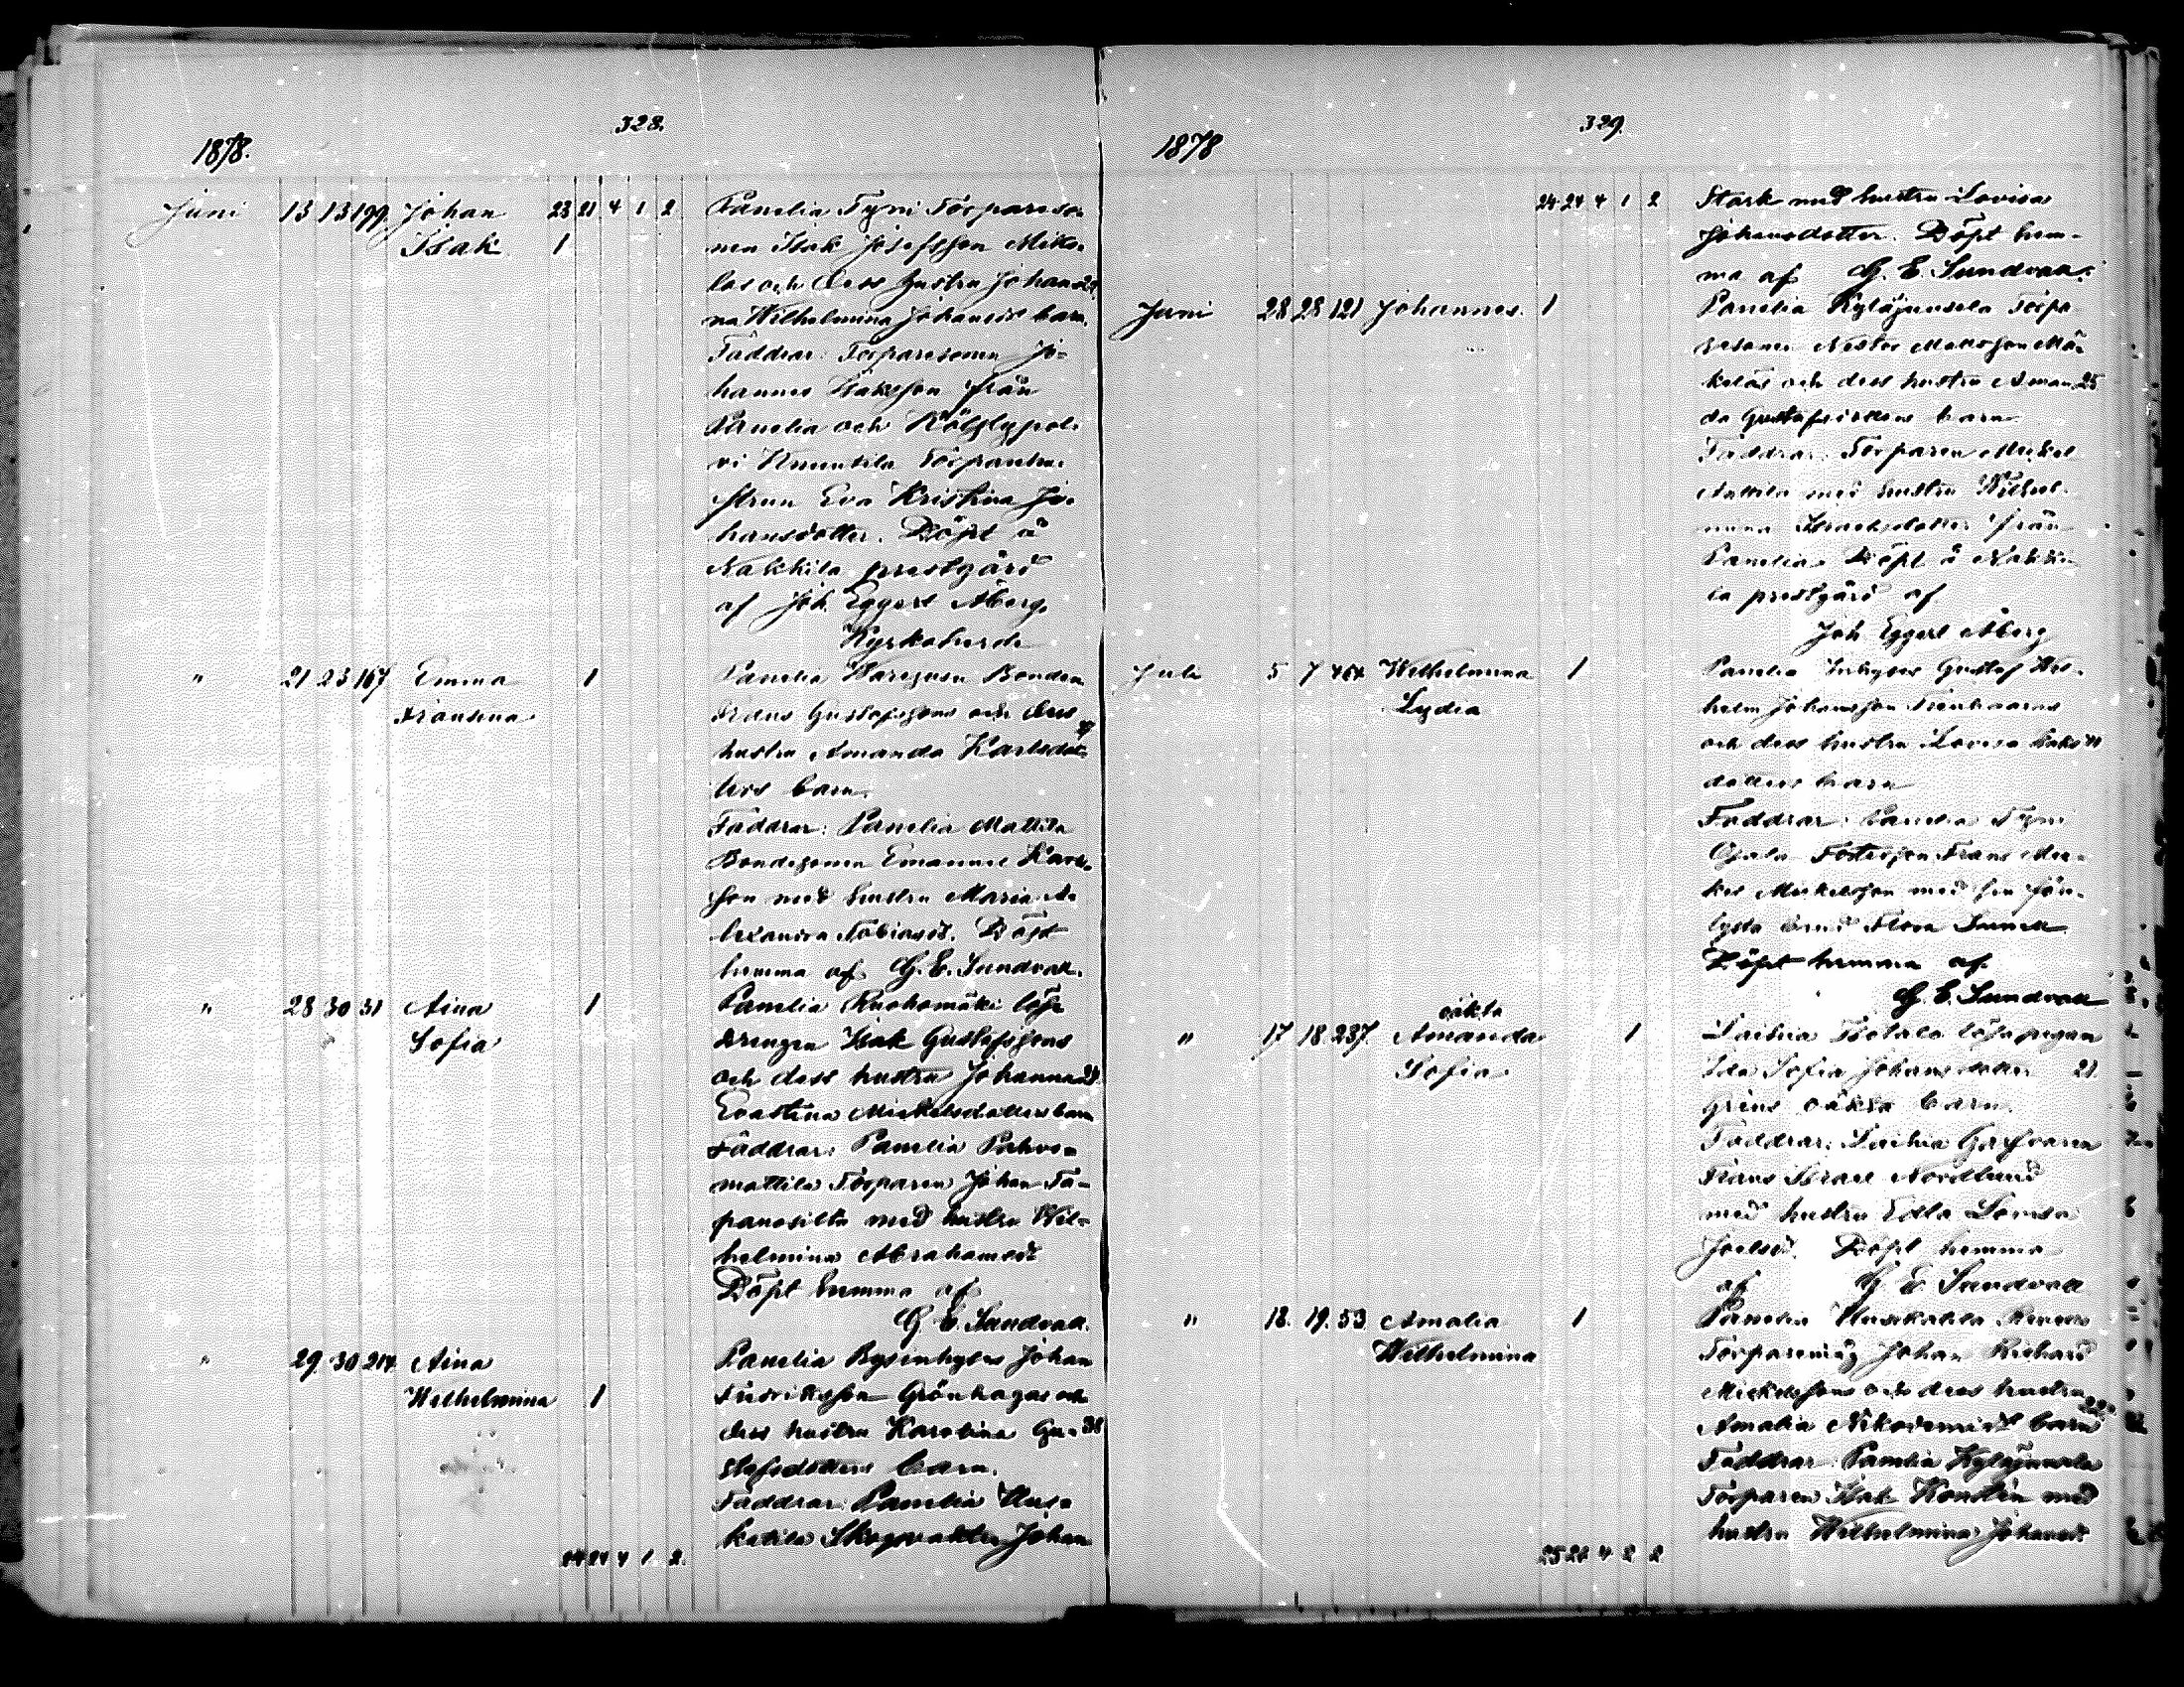 328.
1878.
Juni 13 13 199. Johan 23 21 4 1 2 Panelia Tyni Torpareso-
Isak 1 nen Isak Josefsson Mikko-
las och dess hustru Johan- 21
na Wilhelmina Johansds barn.
Faddrar: Torparesonen Jo-
hannes Isaksson från
Panelia och Kölsly
Torparehu-
strun Eva Kristina Jo-
hansdotter. Döpt å
Nakkila prestgård
af Joh. Eggert Åberg.
Kyrkoherde
" 21 23 167 Emma 1 Panelia Bonden
Fransena Frans Gustafssons och dess
hustru Amanda Karlsdot-
ters barn.
Faddrar: Panelia Mattila
Bondesonen Emanuel Karls-
son med hustru Maria A-
lexandra Tobiasd. Döpt
hemma af G. E. Sundvall.
" 28 30 31 Aina 1 Panelia Ruohomäki lös-
Sofia drengen Isak Gustafssons
och dess hustru Johanna
Evastina Mickelsdotters barn
Faddrar: Panelia Pahvo-
mattila Torparen Johan Ta-
panosilta med hustru Wil-
helmina Abrahamsd.
Döpt hemma af
G. E. Sundvall.
" 29. 30 214. Aina Panelia Bysinhyses Johan
Wilhelmina 1 Fredriksson Grönhagas och
dess hustru Karolina Gu- 38
stafsdotters barn.
Faddrar: Panelia Uus-
katila Skogvakten Johan
24 24 4 1 2.
329.
1878
24 24 4 1 2 Stark med hustru Lovisa
Johansdotter. Döpt hem-
ma af G. E. Sundvall.
Juni 28 28 121 Johannes. 1 Panelia Kyläjunsela Torpa-
resonen Nestor Mattsson Mä-
keläs och dess hustru Aman- 25
da Gustafs barn
Faddrar: Torparen Mickel
Anttila med hustru Wilhel-
mina Israelsdotter från
Panelia. Döpt å Nakki-
la prestgård af
Joh. Eggert Åberg
Juli 5 7 Wilhelmina 1 Panelia Inhyses Gustaf Wil-
Lydia helm Johansson
och dess hustru Lovisa Isaks-
dotters barn
Faddrar: Panelia Tyni
Fosterson Frans
Mickelsson med sin för-
Flora
Döpt hemma af
G. E. Sundvall
oäkta
" 17 18. 237. Amanda 1 Laihia Isotalo lösa pigan
Sofia Ida Sofia Johansdotter 21.
Gröns oäkta barn.
Faddrar: Laihia Garfvaren
Frans Israel Nordlund
med hustru Edla Lovisa
Joelsd. Döpt hemma
af G. E. Sundvall
" 18. 19. 53. Amalia 1 Panelia
Wilhelmina Johan Richard
Mickelssons och dess hustru
Amalia Nikodemisd. barn 22.
Faddrar: Panelia Kyläjunsela
Torparen Isak Konstin med
hustru Wilhelmina Johansd.
25 24 4 2 2